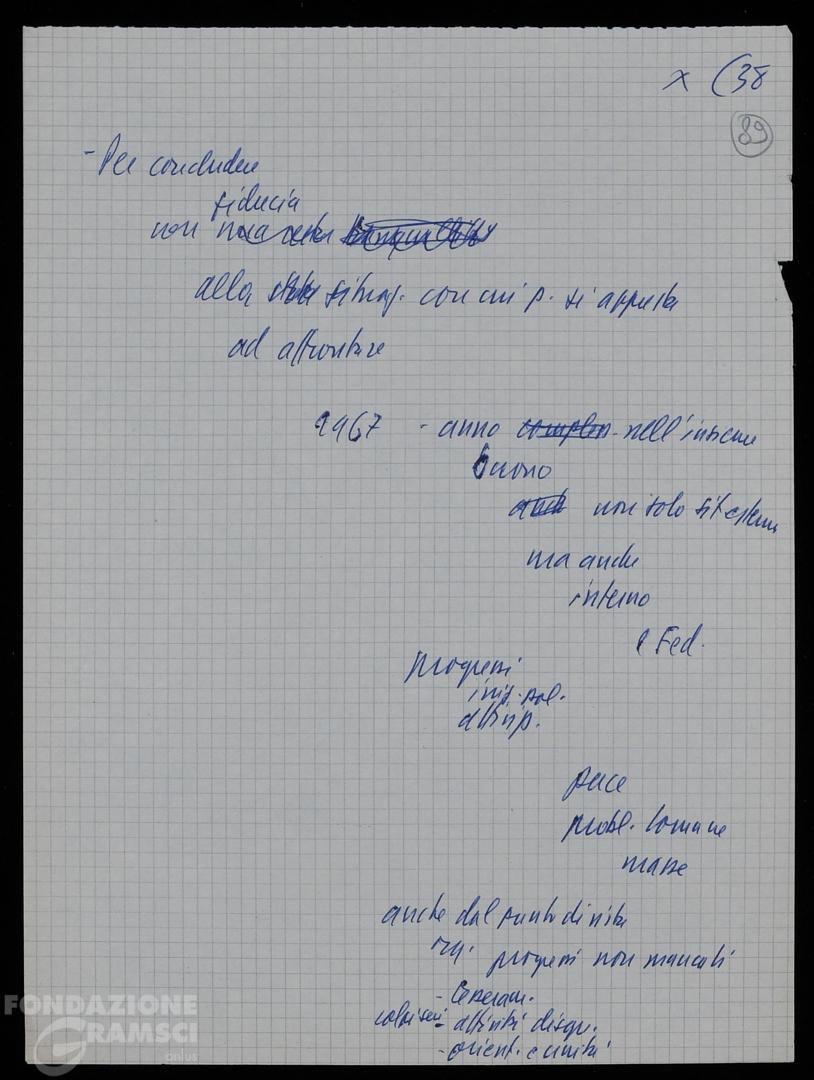 x (38
89
- Per concludere
fiducia
non
alla situaz. con cui p. si appresta
ad affrontare
1967 - anno nell'insieme
buono
non solo sit esterna
ma anche
interno
Fed.
progressi
iniz. pol.
pace
probl. Comune
masse
anche dal punto di vista
progressi non mancati
- tesseram.
- attività disgr.
- orient. e unità
FONDAZIONE
GRAMSCI
onlus